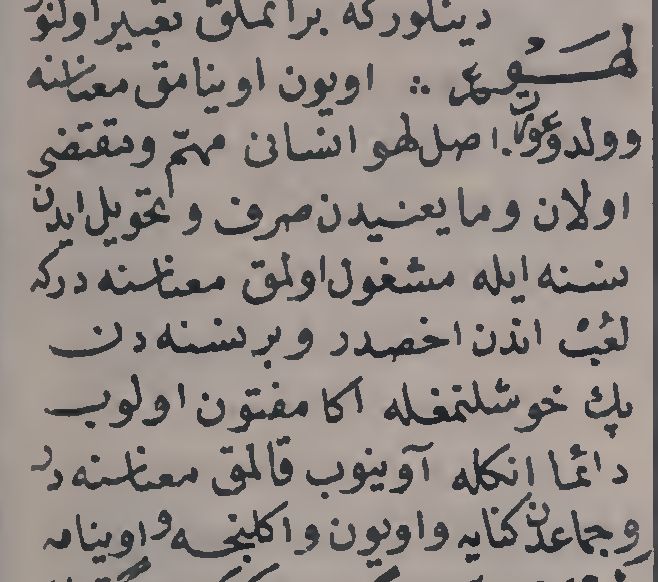 دینلور که بر آتملق تعبیر اولنور
لهو اویون اوینامق معناسنه
و ولد و عورت. اصل لهو انسانی مهمّ و مقتضی
اولان و ما یعنیدن صرف و تحویل ایدن
نسنه ایله مشغول اولمق معناسنه در که
لعب اندن اخصدر و بر نسنه دن
پك خوشلنمغله اكا مفتون اولوب
دائما انكله آوینوب قالمق معناسنه در
و جماعدن كنایه و اویون و اكلنجه و اوینامه